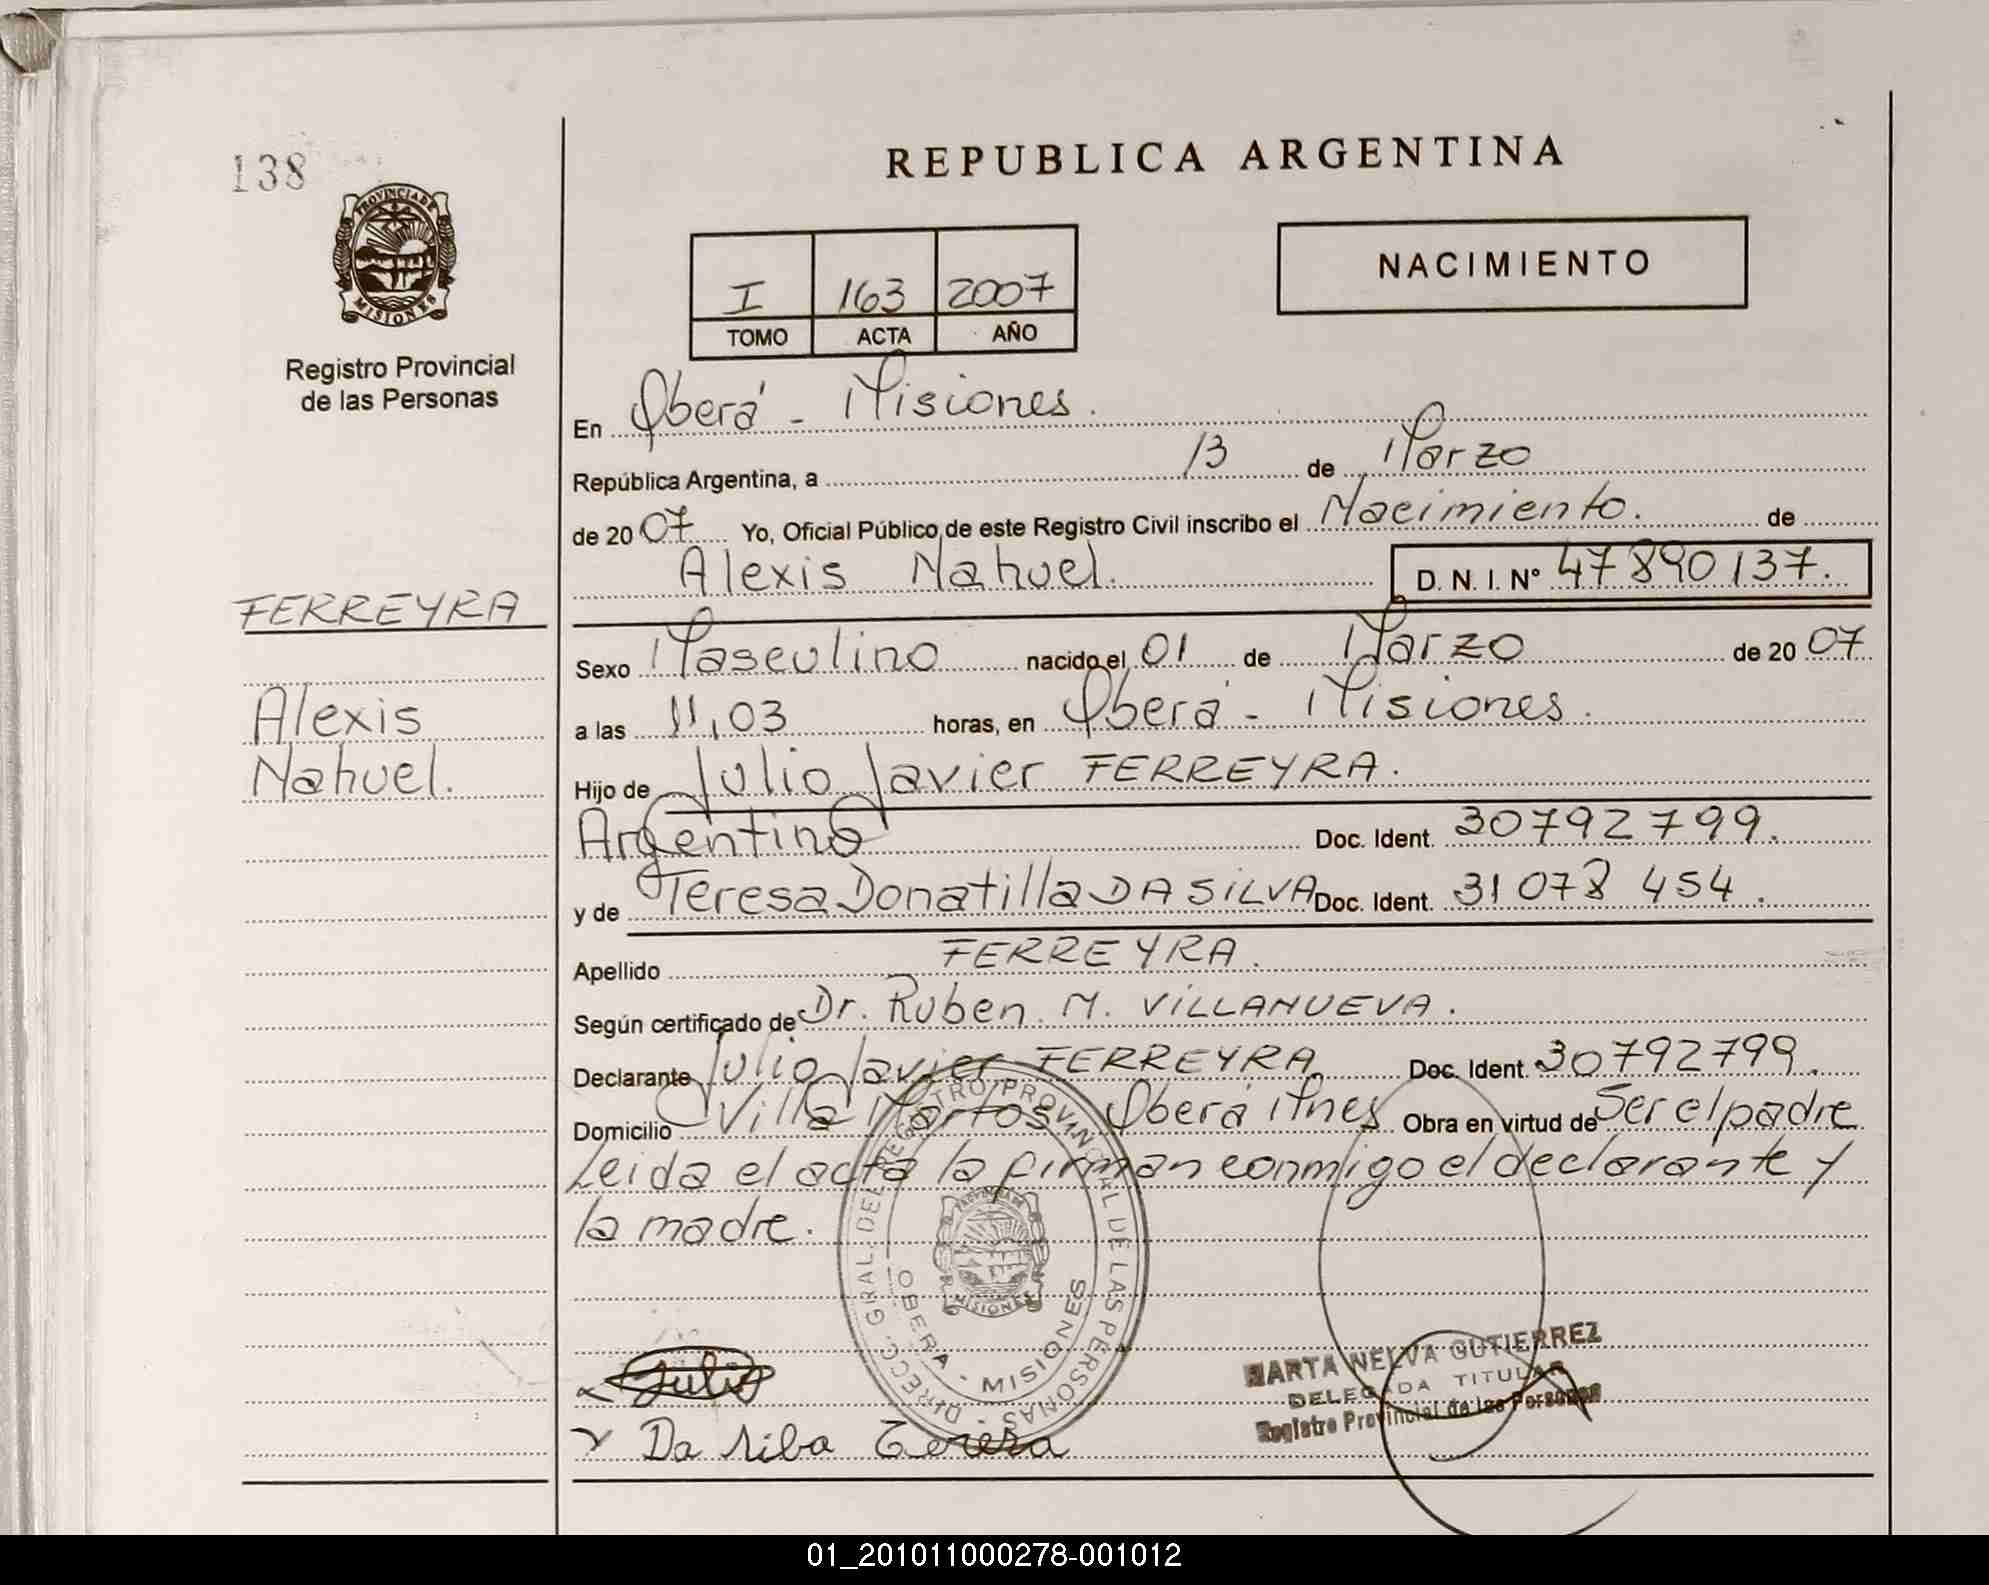 138
REPUBLICA ARGENTINA
PROVINCIA DE
MISIONES
Registro Provincial
de las Personas
I 163 2007
TOMO ACTA AÑO
NACIMIENTO
En Oberá - Misiones.
República Argentina, a 13 de Marzo
de 2007 Yo, Oficial Público de este Registro Civil inscribo el Nacimiento. de
Alexis Nahuel. D. N. I. Nº 47890137.
FERREYRA
Sexo Masculino nacido el 01 de Marzo de 2007
Alexis
Nahuel.
a las 11,03 horas, en Oberá - Misiones.
Hijo de Julio Javier FERREYRA.
Argentino Doc. Ident. 30792799.
y de Teresa Donatilla DA SILVA Doc. Ident. 31078454.
Apellido FERREYRA.
Según certificado de Dr. Ruben M. VILLANUEVA.
Declarante Julio Javier FERREYRA Doc. Ident. 30792799.
Domicilio Villa Martos Oberá Mnes Obra en virtud de Ser el padre
Leida el acta la firman conmigo el declarante y
la madre.
DIRECC. GRAL. DEL REGISTRO PROVINCIAL DE LAS PERSONAS
PROVINCIA DE
MISIONES
OBERA - MISIONES
Julio
Da Silba Teresa
MARTA NELVA GUTIERREZ
DELEGADA TITULAR
Registro Provincial de las Personas
01_201011000278-001012